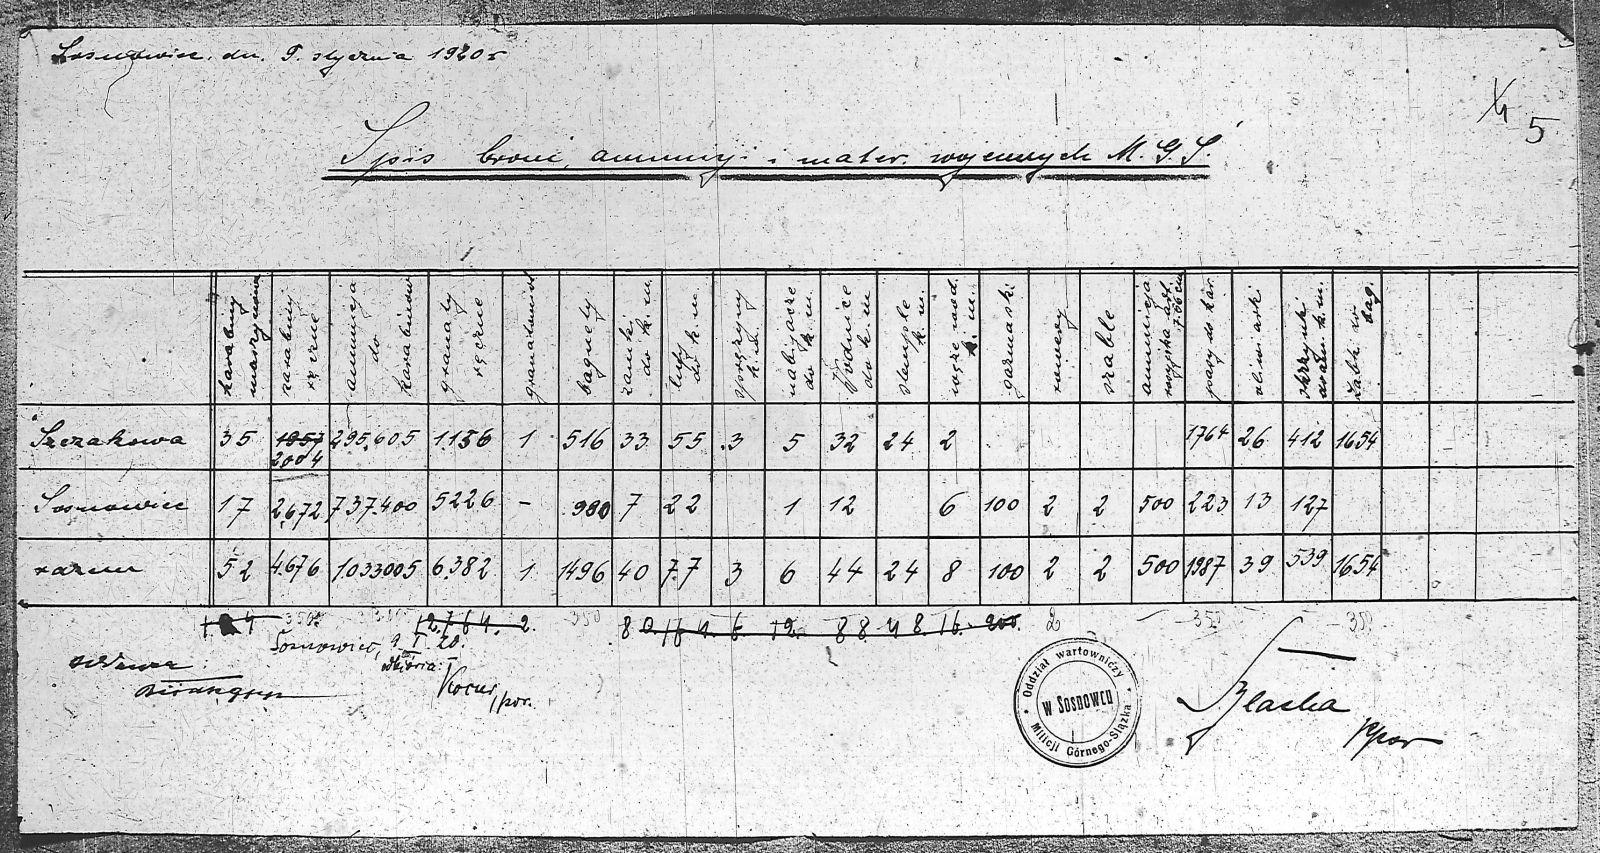 Sosnowiec, dn. 9. stycznia 1920 r
4 5
Spis broni, amunicji i mater. wojennych M. G. Ś.
karabiny maszynowe | karabiny ręczne | amunicja do karabinów | granaty ręczne | | bagnety | zamki do k. m. | lufy do k. m. | sprężyny k. m. | do k. m. | Wodnice do k. m | stemple k. m. | węże wod. k. m. | | rowery | szable | amunicja rosyjska art. 7.06 cm | pasy do kar. | | skrzynki do am. k. m. | Żabk. do bag.
Szczakowa | 35 | 1957 2004 | 295.605 | 1.156 | 1 | 516 | 33 | 55 | 3 | 5 | 32 | 24 | 2 | | | | | 1764 | 26 | 412 | 1654
Sosnowiec | 17 | 2.672 | 737.400 | 5226 | – | 980 | 7 | 22 | | 1 | 12 | | 6 | 100 | 2 | 2 | 500 | 223 | 13 | 127
razem | 52 | 4.676 | 1.033.005 | 6.382 | 1 | 1496 | 40 | 77 | 3 | 6 | 44 | 24 | 8 | 100 | 2 | 2 | 500 | 1987 | 39 | 539 | 1654
104 350 12.764. 2. 350 80 164 6 12 88 48. 16. 200. 2 350 350
Sosnowiec, 9. I. 20.
odbiera:
Kocur, por.
Oddział wartowniczy
w Sosnowcu
Milicji Górnego-Śląska
Blacha
ppor